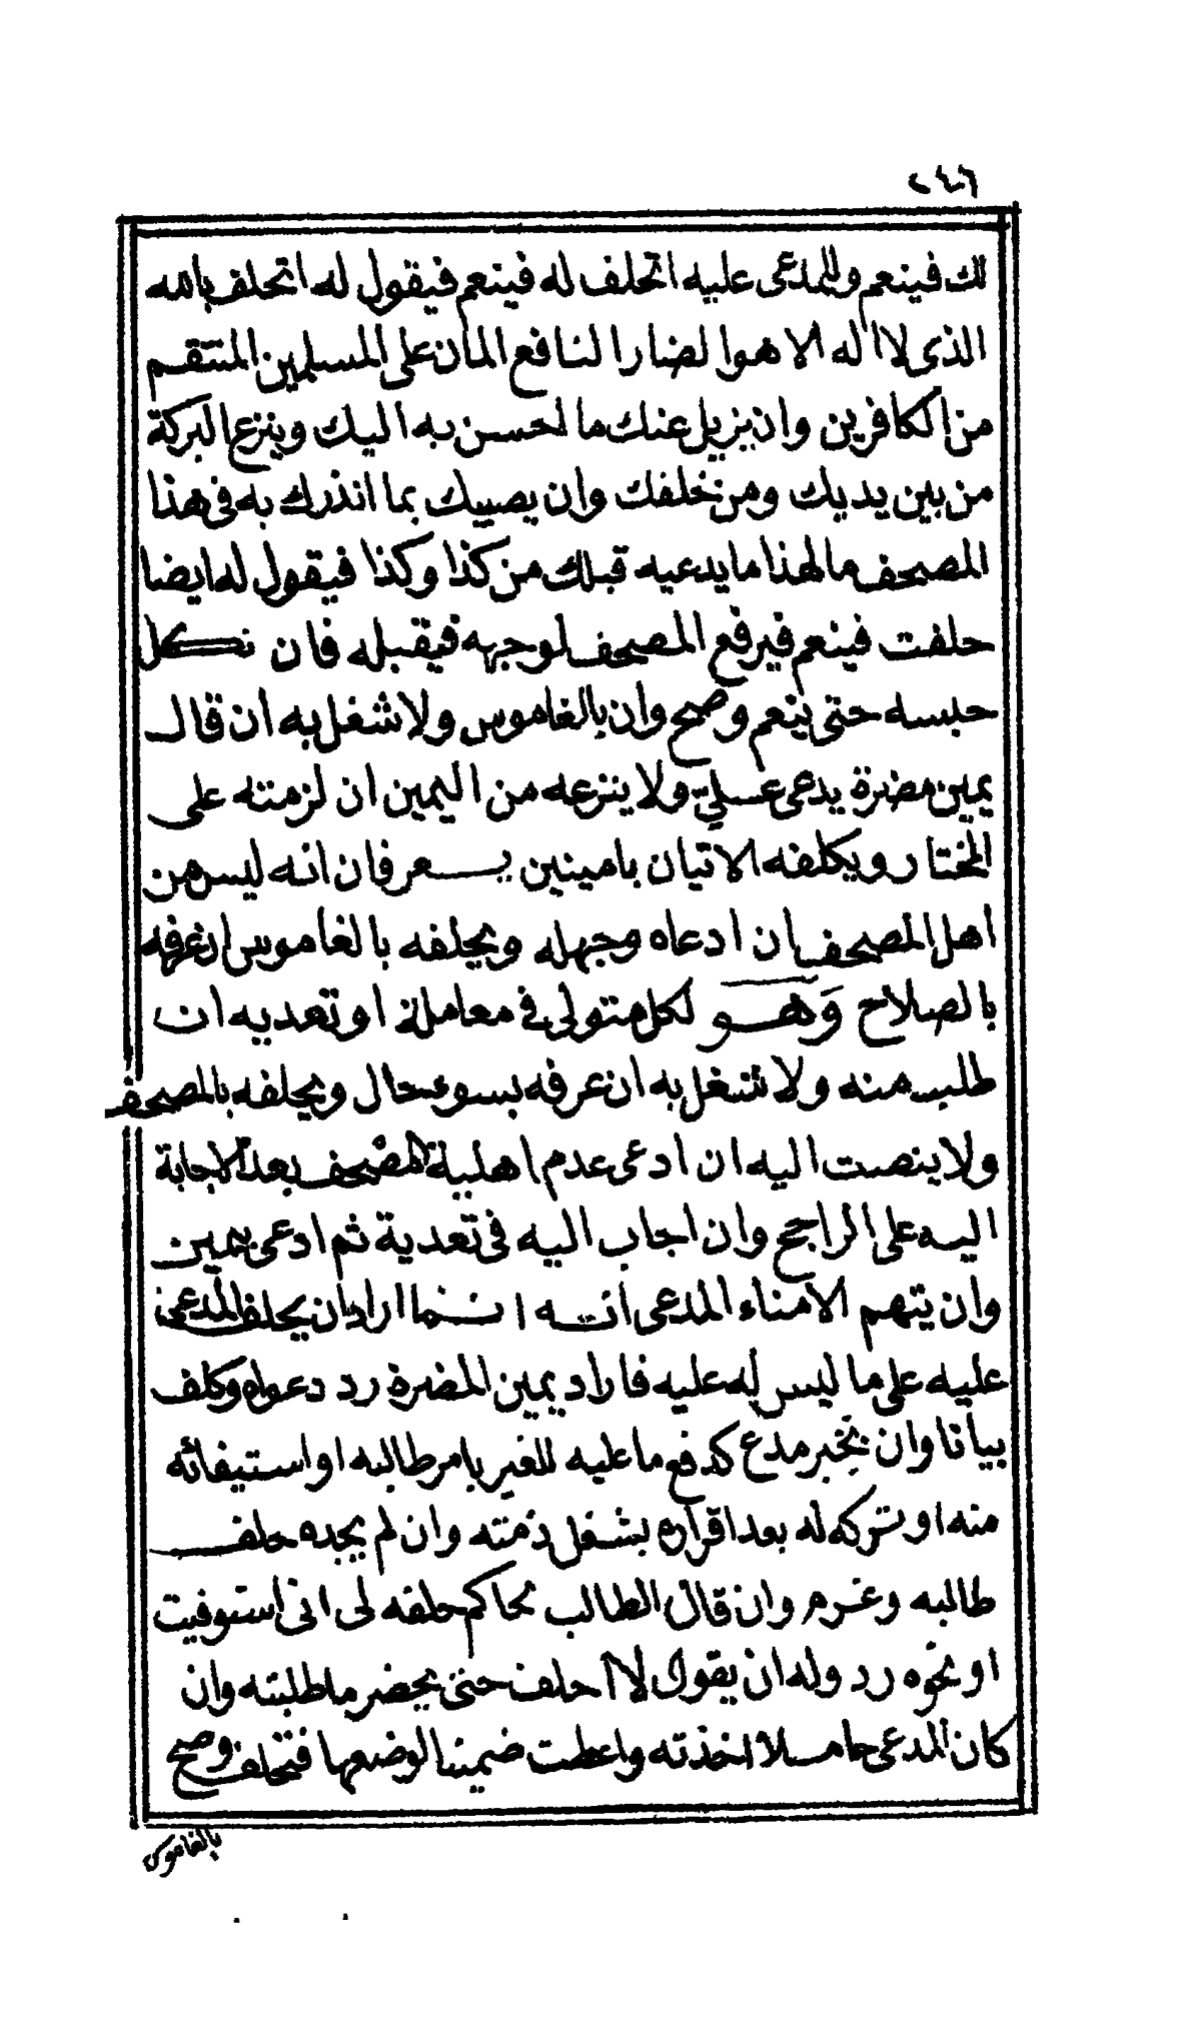 ٢٤٦
لك فينعم وللمدعى عليه اتحلف له فينعم فيقول له اتحلف بالله
الذى لا اله الا هو الضار النافع المان على المسلمين المنتقم
من الكافرين وان يزيل عنك ما احسن به اليك وينزع البركة
من بين يديك ومن خلفك وان يصيبك بما انذرك به فى هذا
المصحف ما لهذا ما يدعيه قبلك من كذا وكذا فيقول له ايضا
حلفت فينعم فيرفع المصحف لوجهه فيقبله فان نكل
حبسه حتى ينعم وصح وان بالغاموس ولا شغل به ان قال
يمين مضرة يدعى علىّ ولا ينزعه من اليمين ان لزمته على
المختار ويكلفه الاتيان بامينين يعرفان انه ليس من
اهل المصحف ان ادعاه وجهله ويحلفه بالغاموس ان عرفه
بالصلاح وهو لكل متولى فى معاملة او تعديه ان
طلب منه ولا شغل به ان عرفه بسوء حال ويحلفه بالمصحف
ولا ينصت اليه ان ادعى عدم اهلية المصحف بعد الاجابة
اليه على الراجح وان اجاب اليه فى تعدية ثم ادعى يمين
وان يتهم الامناء المدعى انه انما اراد ان يحلف المدعى
عليه على ما ليس له عليه فاراد يمين المضرة رد دعواه وكلف
بيانا وان بخبر مدع كدفع ما عليه للغير بامر طالبه او استيفائه
منه او تركه له بعد اقراره بشغل ذمته وان لم يجده حلف
طالبه وغرم وان قال الطالب لحاكم حلفه لى انى استوفيت
او نحوه رد وله ان يقول لا احلف حتى يحضر ما طلبته وان
كان المدعى حاملا اخذته واعطت ضمينا لوضعها فتحلف وصح
بالغاموس